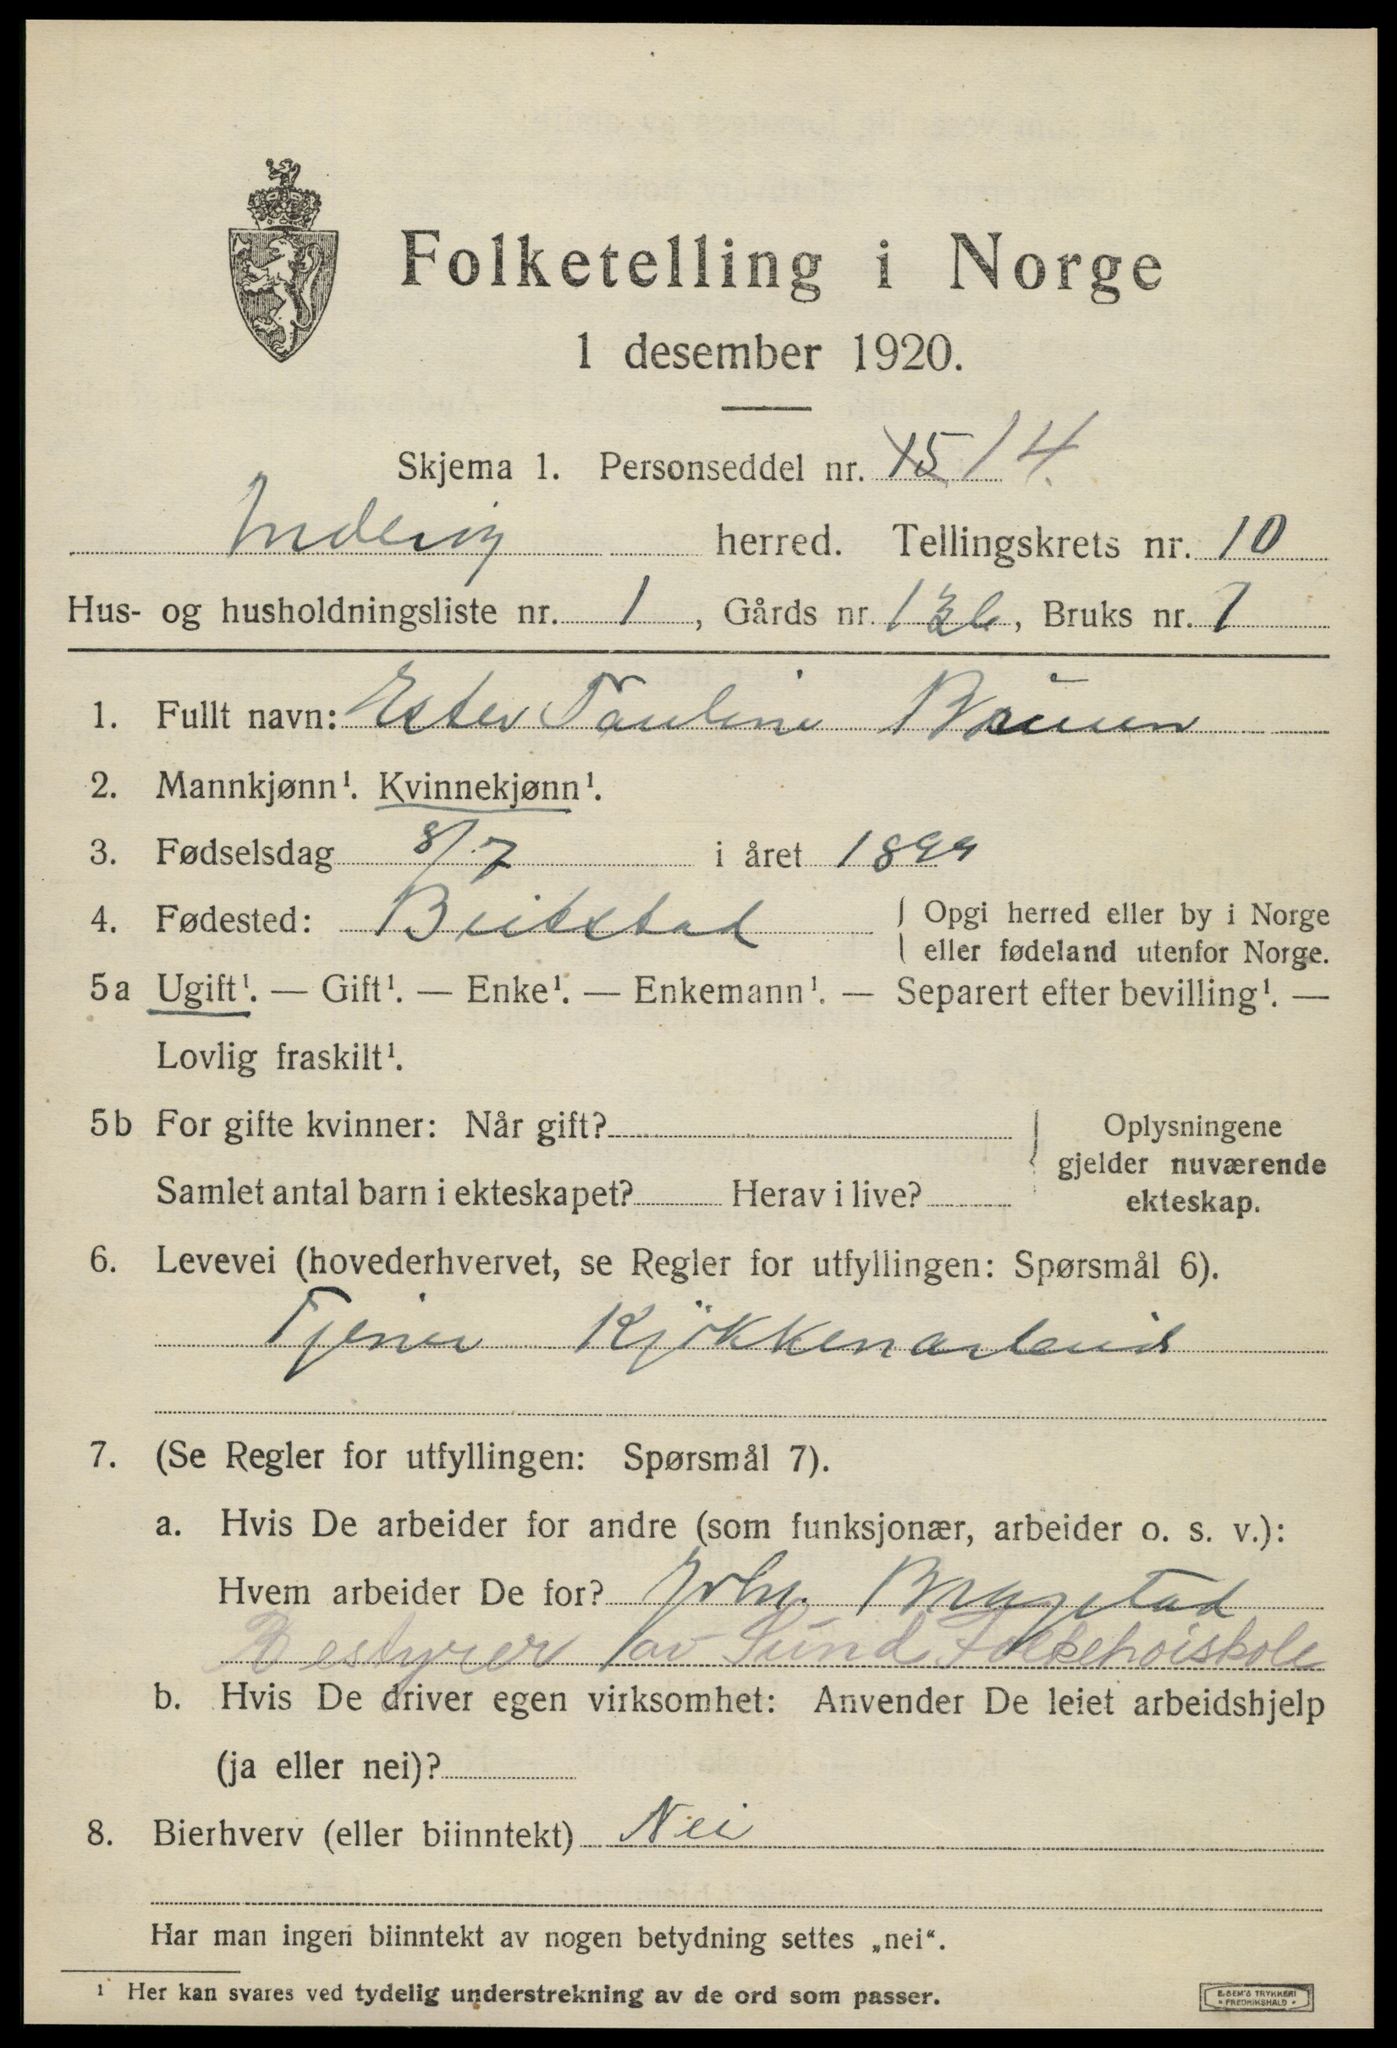 Folketelling i Norge
1 desember 1920.
Skjema 1. Personseddel nr. 15 14.
Inderøy herred. Tellingskrets nr. 10
Hus- og husholdningsliste nr. 1, Gårds nr. 136, Bruks nr. 1
1. Fullt navn: Ester Pauline
2. Mannkjønn¹. Kvinnekjønn¹.
3. Fødselsdag 8/7 i året 1899
4. Fødested: Beitstad { Opgi herred eller by i Norge
eller fødeland utenfor Norge.
5a Ugift¹. — Gift¹. — Enke¹. — Enkemann¹. — Separert efter bevilling¹. —
Lovlig fraskilt¹.
5b For gifte kvinner: Når gift? } Oplysningene
gjelder nuværende
Samlet antal barn i ekteskapet? Herav i live? ekteskap.
6. Levevei (hovederhvervet, se Regler for utfyllingen: Spørsmål 6).
Tjener Kjøkkenarbeid
7. (Se Regler for utfyllingen: Spørsmål 7).
a. Hvis De arbeider for andre (som funksjonær, arbeider o. s. v.):
Hvem arbeider De for? Joh. Bragstad
Bestyrer av Sund Folkehøiskole
b. Hvis De driver egen virksomhet: Anvender De leiet arbeidshjelp
(ja eller nei)?
8. Bierhverv (eller biinntekt) Nei
Har man ingen biinntekt av nogen betydning settes „nei“.
¹ Her kan svares ved tydelig understrekning av de ord som passer.
E. SEM'S TRYKKERI
FREDRIKSHALD